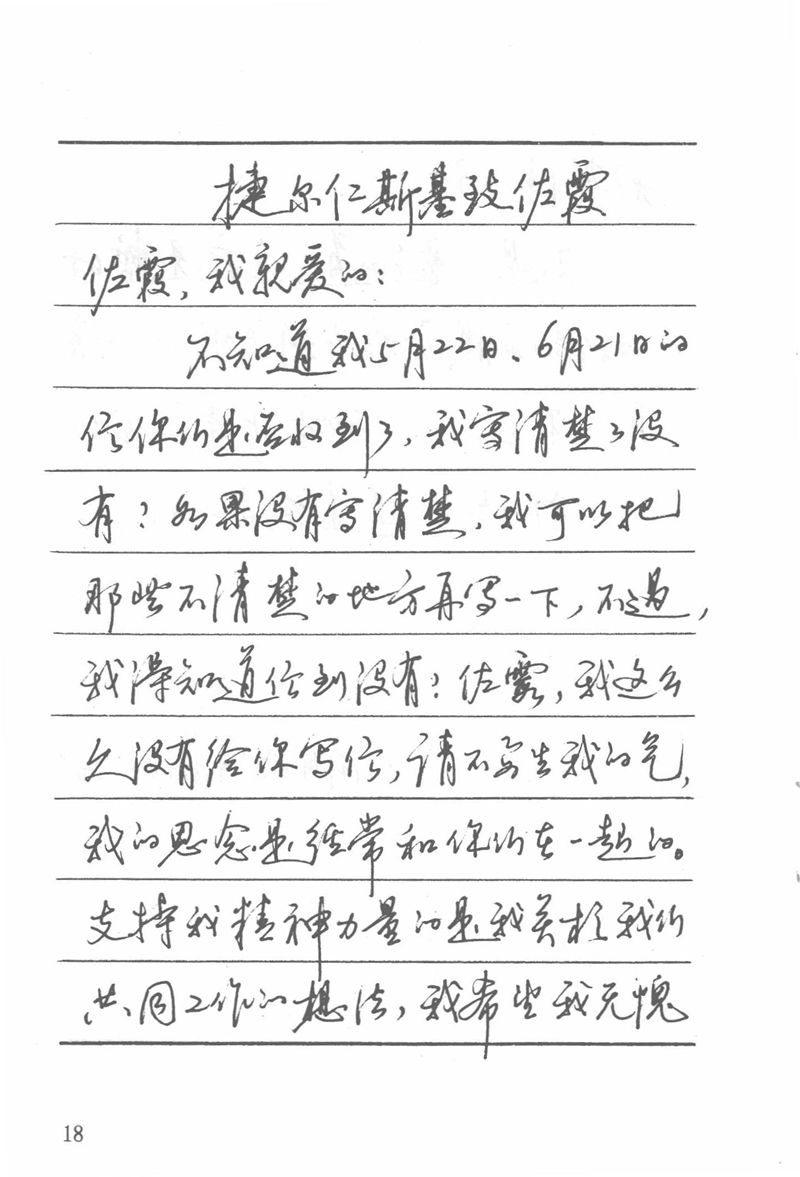 捷尔仁斯基致佐霞
佐霞,我亲爱的:
不知道我5月22日、6月21日的
信你们是否收到了,我写清楚了没
有?如果没有写清楚,我可以把
那些不清楚的地方再写一下,不过,
我得知道信到没有?佐霞,我这么
久没有给你写信,请不要生我的气,
我的思念是经常和你们在一起的。
支持我精神力量的是我关于我们
共同工作的想法,我希望我无愧
18